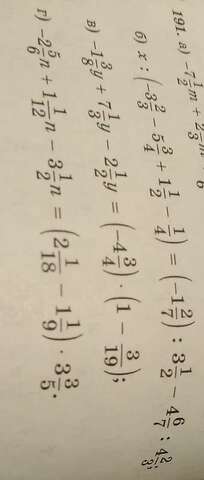 191. а) -7 1/2 m + 2
б) x : (-3 2/3 - 5 3/4 + 1 1/2 - 1/4) = (-1 2/7) : 3 1/2 - 4 6/7 : 4 2/3;
в) -1 3/8 y + 7 1/3 y - 2 1/2 y = (-4 3/4) · (1 - 3/19);
г) -2 5/6 n + 1 1/12 n - 3 1/2 n = (2 1/18 - 1 1/9) · 3 3/5.